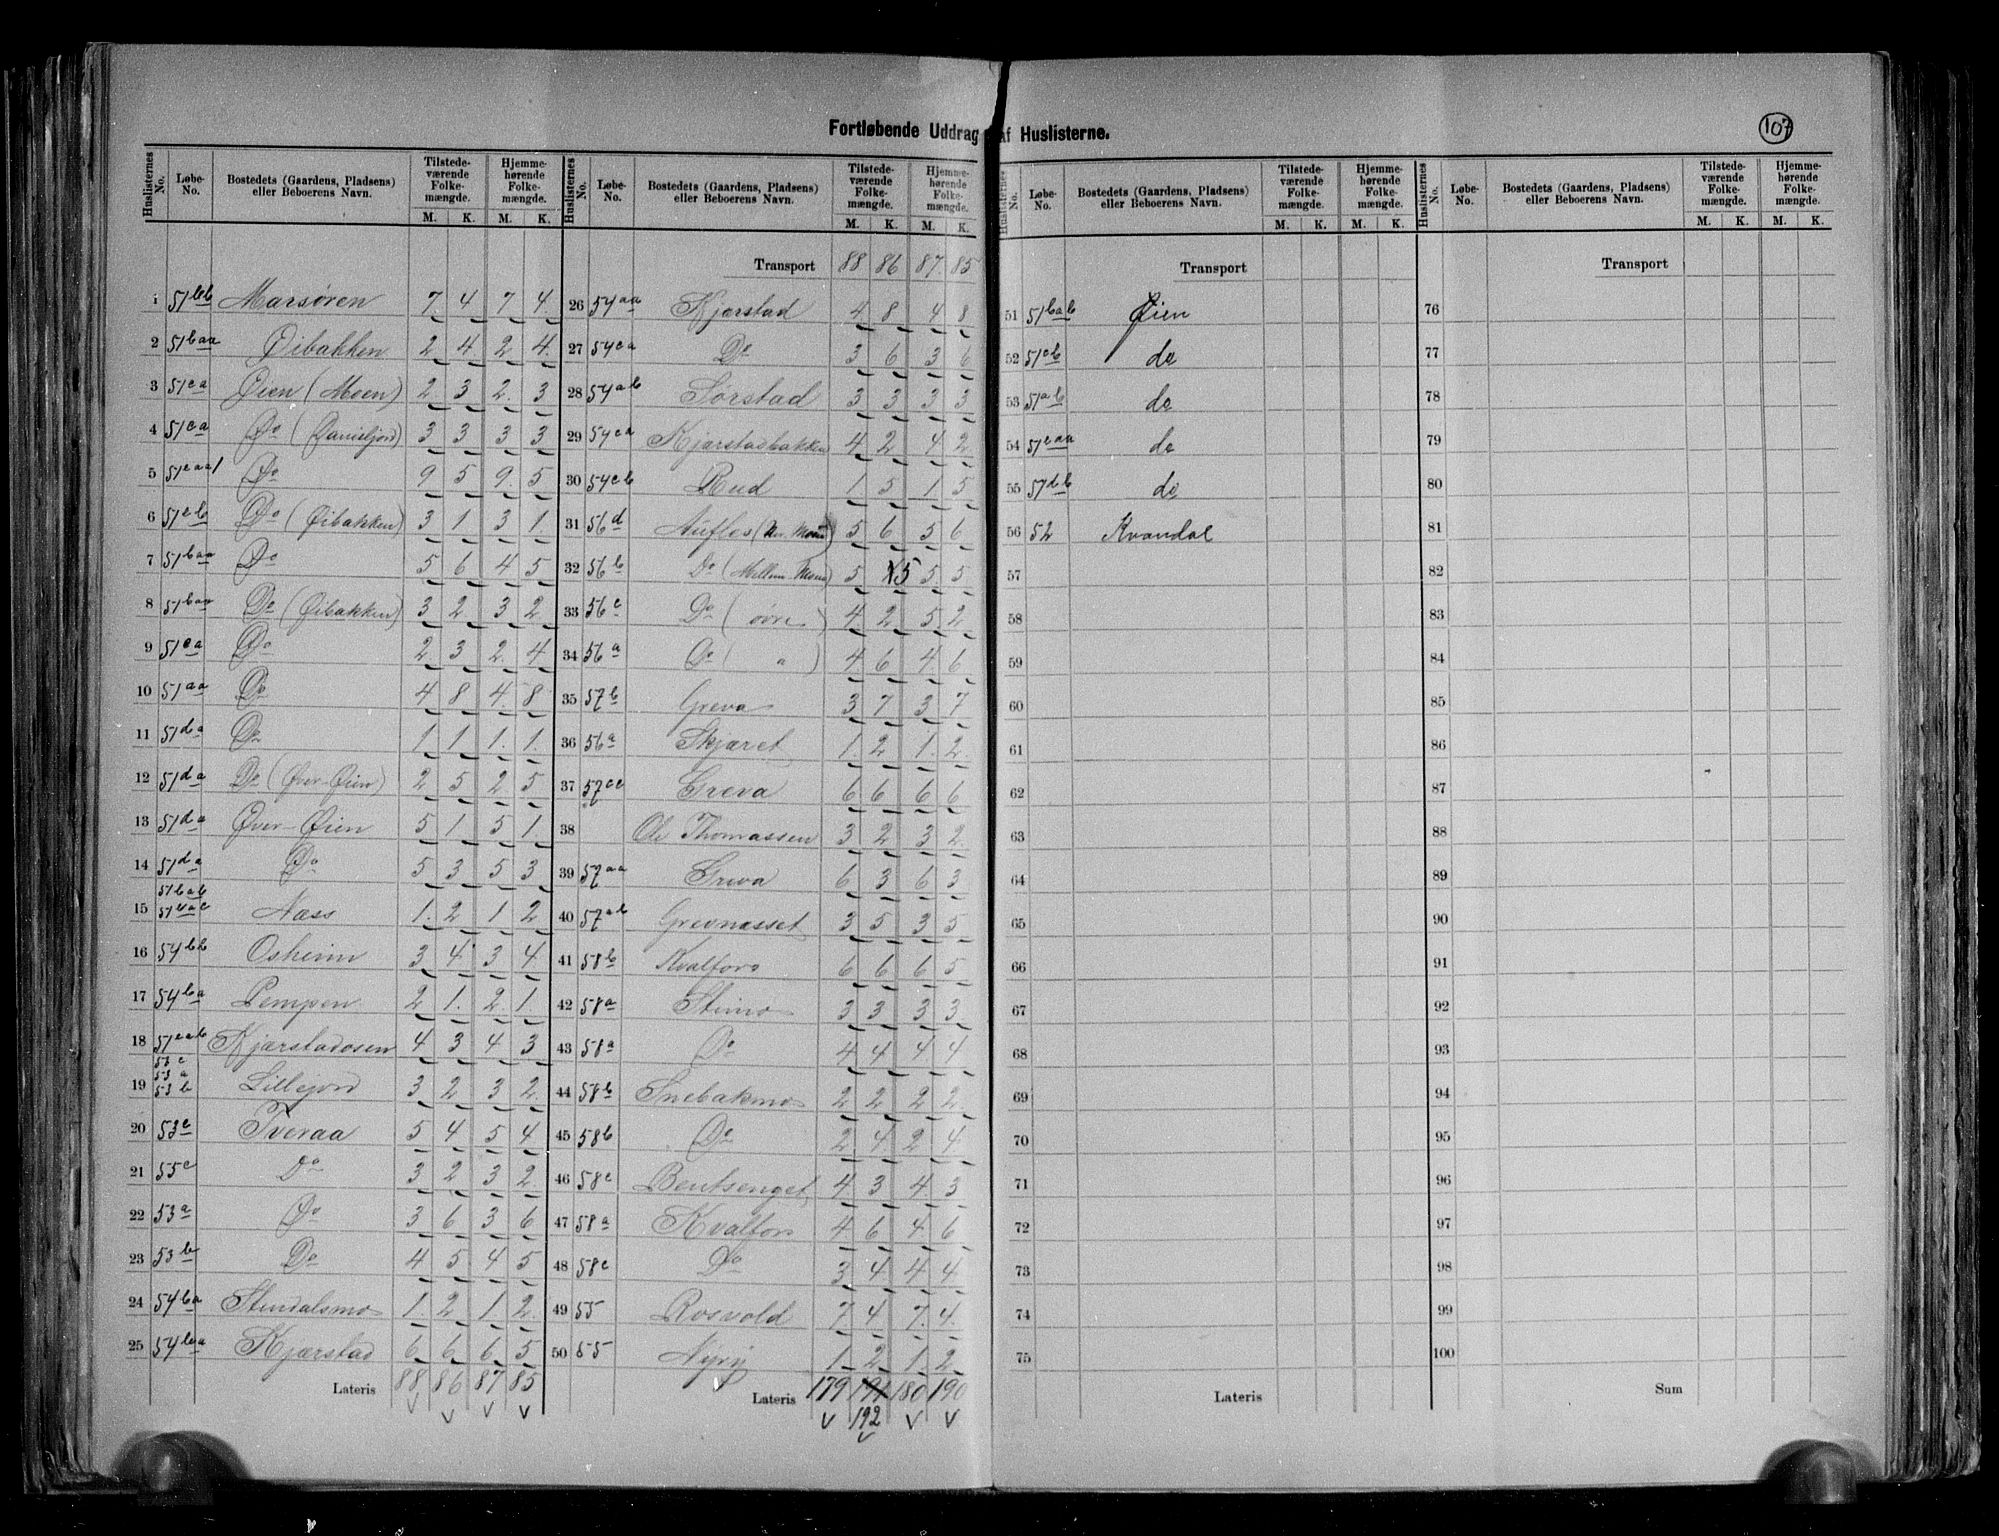 Fortløbende Uddrag af Huslisterne.
107
Huslisternes No. Løbe-No. Bostedets (Gaardens, Pladsens) eller Beboerens Navn. Tilstedeværende Folkemængde. M. K. Hjemmehørende Folkemængde. M. K.
1 51bb Marsøren 7 4 7 4
2 51baa Øibakken 2 4 2 4
3 51ca Øien (Moen) 2 3 2 3
4 51ca Do (Danieljord) 3 3 3 3
5 51caa1 Do 9 5 9 5
6 51cb Do (Øibakken) 3 1 3 1
7 51baa Do 5 6 4 5
8 51baa Do (Øibakken) 3 2 3 2
9 51ca Do 2 3 2 4
10 51aa Do 4 8 4 8
11 51da Do 1 1 1 1
12 51da Do (Øver-Øien) 2 5 2 5
13 51da Øver-Øien 5 1 5 1
14 51da Do 5 3 5 3
51bab
15 Næss 1 2 1 2
16 54bb Osheim 3 4 3 4
17 54ba Lempen 2 1 2 1
18 51cab Kjærstadosen 4 3 4 3
53c
53a
19 53b Lillejord 3 2 3 2
20 53c Tveraa 5 4 5 4
21 55c Do 3 2 3 2
22 53a Do 3 6 3 6
23 53b Do 4 5 4 5
24 54ba Stendalsmo 1 2 1 2
25 54baa Kjærstad 6 6 6 5
Lateris 88 86 87 85
Huslisternes No. Løbe-No. Bostedets (Gaardens, Pladsens) eller Beboerens Navn. Tilstedeværende Folkemængde. M. K. Hjemmehørende Folkemængde. M. K.
Transport 88 86 87 85
26 54aa Kjærstad 4 8 4 8
27 54ca Do 3 6 3 6
28 54ab Sørstad 3 3 3 3
29 54ca Kjærstadbakken 4 2 4 2
30 54cb Rud 1 5 1 5
31 56d Aufles 5 6 5 6
32 56b Do (Mellem Moen) 5 5 5 5
33 56c Do (øvre) 4 2 5 2
34 56a Do ( " ) 4 6 4 6
35 57b Greva 3 7 3 7
36 56a Skjæret 1 2 1 2
37 57ac Greva 6 6 6 6
38 Ole Thomassen 3 2 3 2
39 57aa Greva 6 3 6 3
40 57ab Grevnæsset 3 5 3 5
41 58b Kvalfors 6 6 6 5
42 58a Stimo 3 3 3 3
43 58a Do 4 4 4 4
44 58b Snebakmo 2 2 2 2
45 58b Do 2 4 2 4
46 58c Bentsenget 4 3 4 3
47 58a Kvalfors 4 6 4 6
48 58c Do 3 4 4 4
49 55 Rosvold 7 4 7 4
50 55 Nyrij 1 2 1 2
Lateris 179 191 180 190
192
Huslisternes No. Løbe-No. Bostedets (Gaardens, Pladsens) eller Beboerens Navn. Tilstedeværende Folkemængde. M. K. Hjemmehørende Folkemængde. M. K.
Transport
51 51bab Øien
52 51cb do
53 51ab do
54 51caa do
55 51db do
56 52 Kvandal
57
58
59
60
61
62
63
64
65
66
67
68
69
70
71
72
73
74
75
Lateris
Huslisternes No. Løbe-No. Bostedets (Gaardens, Pladsens) eller Beboerens Navn. Tilstedeværende Folkemængde. M. K. Hjemmehørende Folkemængde. M. K.
Transport
76
77
78
79
80
81
82
83
84
85
86
87
88
89
90
91
92
93
94
95
96
97
98
99
100
Sum